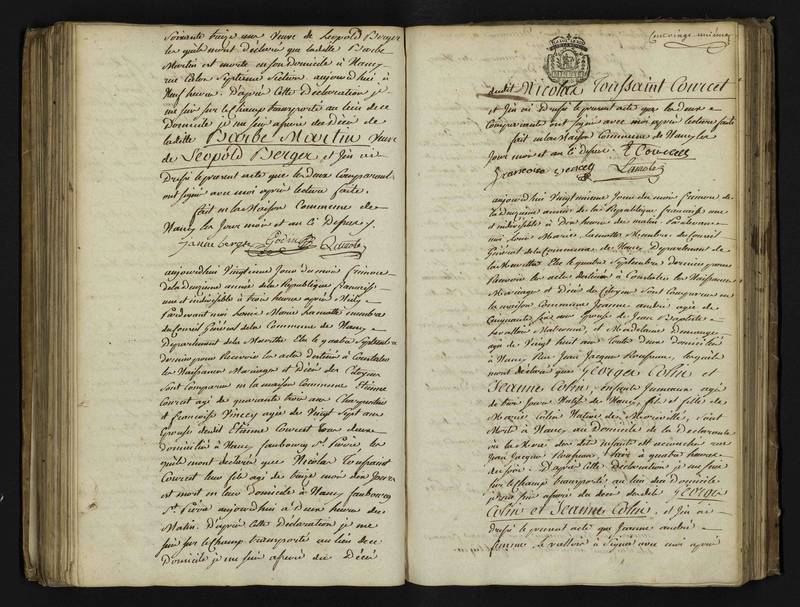 Soixante treize ans veuve de Léopold Berger
lesquels mont déclaré que ladite Barbe
Martin est morte en son domicile à Nancy
Septieme Section aujourd'hui à
Neuf heures. D'après Cette Déclaration je
me suis sur le Champ transporté au lieu de ce
Domicile je me suis assuré du Décès de
ladite Barbe Martin veuve
de Léopold Berger et j'en ai
Dressé le présent acte que les deux Comparants
ont signé avec moi après lecture faite.
fait en la Maison Commune de
Nancy les Jour mois et an Ci Dessus
Lamolle
aujourd'hui Vingtieme Jour du mois frimaire
de la deuzieme année de la République française
une et indivisible à trois heures après Midy
Pardevant moi Louis Marie Lamolle membre
du Conseil Général de la Commune de Nancy
Departement de la Meurthe Elu le quatre Septembre
dernier pour Recevoir les actes destinés à Constater
les Naissances Mariages et Décès des Citoyens
Sont Comparus en la maison Commune Etienne
Courcet agé de quarante trois ans Charpentier
et Françoise Vincey agée de Vingt Sept ans
Epouse dudit Etienne Courcet tous deux
Domiciliés à Nancy faubourg St. Pierre les
quels mont déclaré que Nicolas Toussaint
Courcet leur fils agé de treize mois dix Jours
est mort en leur Domicile à Nancy faubourg
St. Pierre aujourd'hui à deux heures du
Matin. D'après Cette Déclaration je me
suis sur le Champ transporté au lieu de ce
Domicile je me suis assuré du Décès
dudit Nicolas Toussaint Courcet
et J'en ai Dressé le présent acte que les deux
Comparants ont signé avec moi après lecture faite
fait en la Maison Commune de Nancy les
Jour mois et an Ci Dessus. E Courcet
Lamolle
aujourd'hui Vingtunieme Jour du mois frimaire de
la deuzieme année de la République française une
et indivisible à Dix heures du matin. Pardevant
moi Louis Marie Lamolle Membre du Conseil
Général de la Commune de Nancy Departement de
la Meurthe Elu le quatre Septembre dernier pour
Recevoir les actes destinés à Constater les Naissances
Mariages et Décès des Citoyens Sont Comparus en
la maison Commune Jeanne André agée de
Cinquante ans Epouse de Jean Baptiste
et Madelaine Demange
agée de Vingt huit ans toute deux domiciliés
à Nancy Rue Jean Jacques Rousseau, lesquels
mont déclaré que Georges Colin et
Jeanne Colin, enfants Jumeaux agés
de trois Jours Natifs de Nancy, fils et fille de
Marie Colin Native de sont
Morts à Nancy au Domicile de la Déclarante
où la Mère des dits enfants est
Jean Jacques Rousseau, hier à quatre heures
du soir. D'après Cette Déclaration je me suis
sur le Champ transporté au lieu du domicile
je me suis assuré du décès desdits Georges
Colin et Jeanne Colin, et J'en ai
dressé le présent acte que Jeanne André
femme Levallois a signé avec moi après